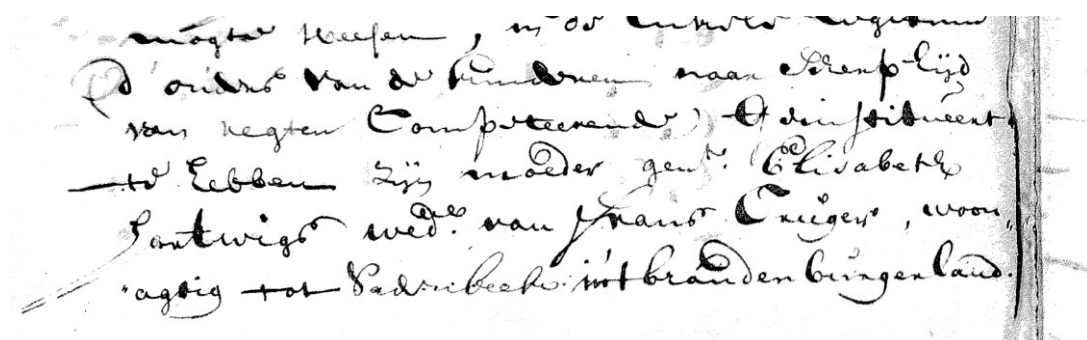 mogte weesen, in de enkele Legitime
d'ouders van de kinderen naar scherpheijd
van regten Competeerende, Geinstitueert
te hebben zijn moeder gent. Elisabeth
Hartwigs wede. van Frans Cruger, woon„
agtig tot int brandenburgerland.